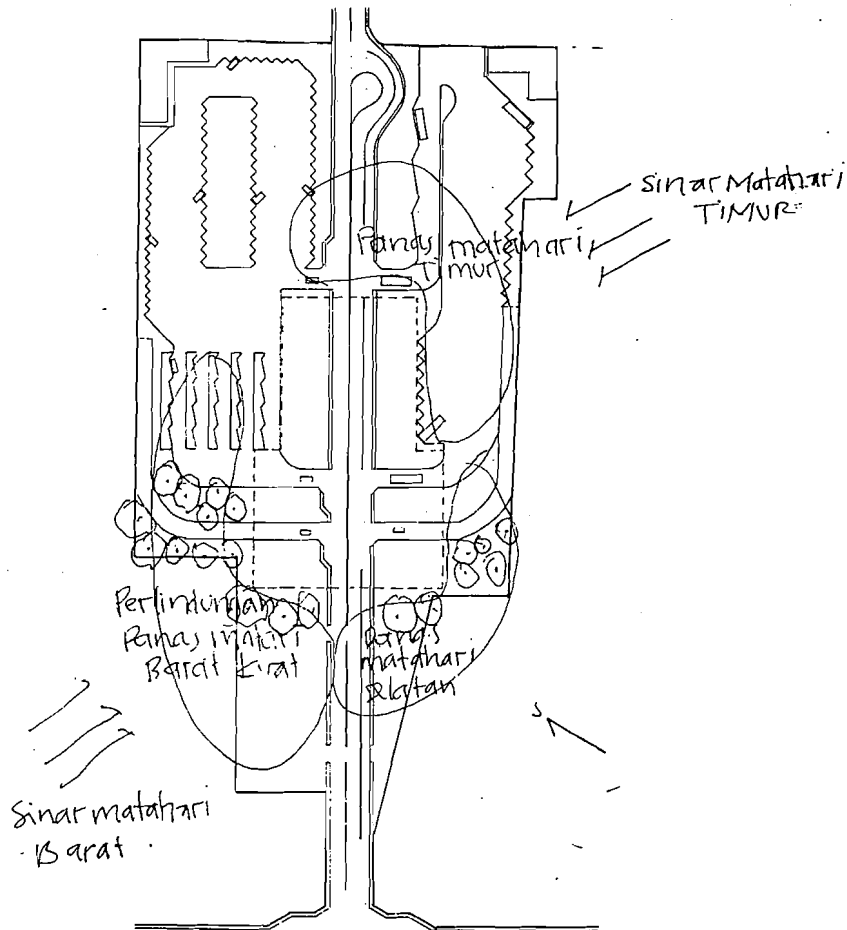 Sinar Matahari
TIMUR
Panas matahari
Timur
Perlindungan
Panas mahari
Barat
Panas
matahari
selatan
S
Sinar matahari
Barat